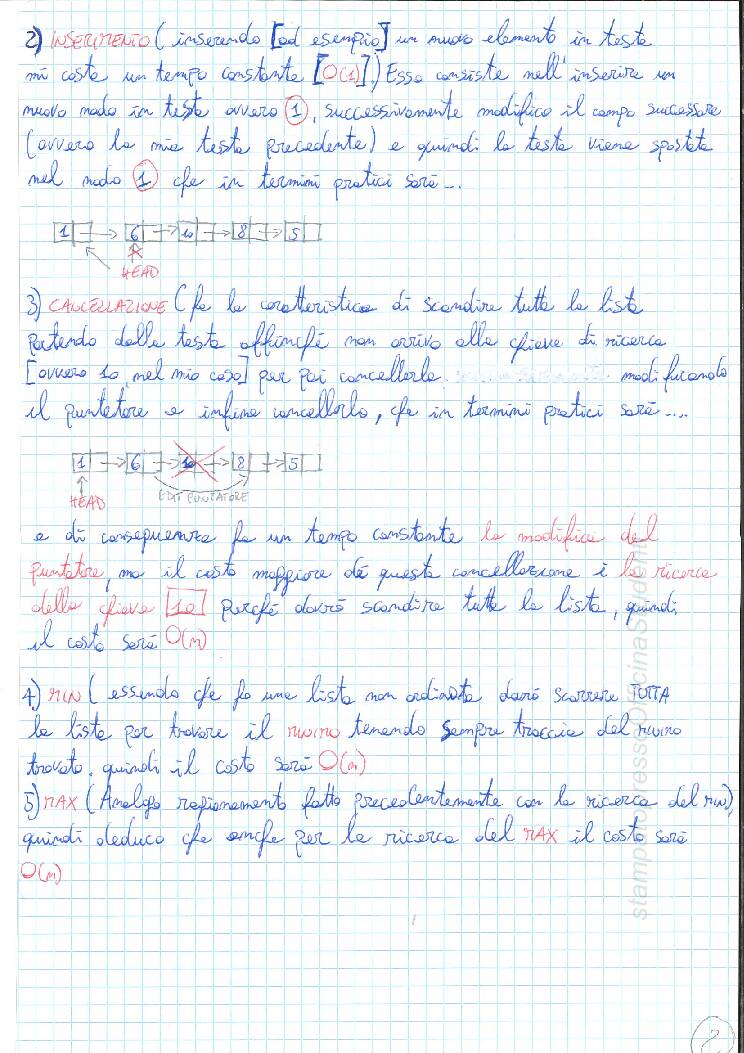 2) INSERIMENTO ( inserendo [ad esempio] un nuovo elemento in testa
mi costa un tempo constante [O(1)].) Esso consiste nell'inserire un
nuovo nodo in testa ovvero 1, successivamente modifico il campo successore
(ovvero la mia testa precedente) e quindi la testa viene spostata
nel nodo 1 che in termini pratici sarà ...
1 6 10 8 5
HEAD
3) CANCELLAZIONE ( ha la caratteristica di scandire tutta la lista
partendo dalla testa affinché non arrivo alla chiave di ricerca
[ovvero 10, nel mio caso] per poi cancellarla modificando
il puntatore e infine cancellarlo, che in termini pratici sarà ....
1 6 10 8 5
HEAD EDIT PUNTATORE
e di conseguenza ha un tempo constante la modifica del
puntatore, ma il costo maggiore di questa cancellazione è la ricerca
della chiave 10 perché dovrò scandire tutta la lista, quindi
il costo sarà O(n)
4) MIN ( essendo che ho una lista non ordinata dovrò scorrere TUTTA
la lista per trovare il minimo tenendo sempre traccia del minimo
trovato. quindi il costo sarà O(n)
5) MAX ( Analogo ragionamento fatto precedentemente con la ricerca del MIN)
quindi deduco che anche per la ricerca del MAX il costo sarà
O(n)
2